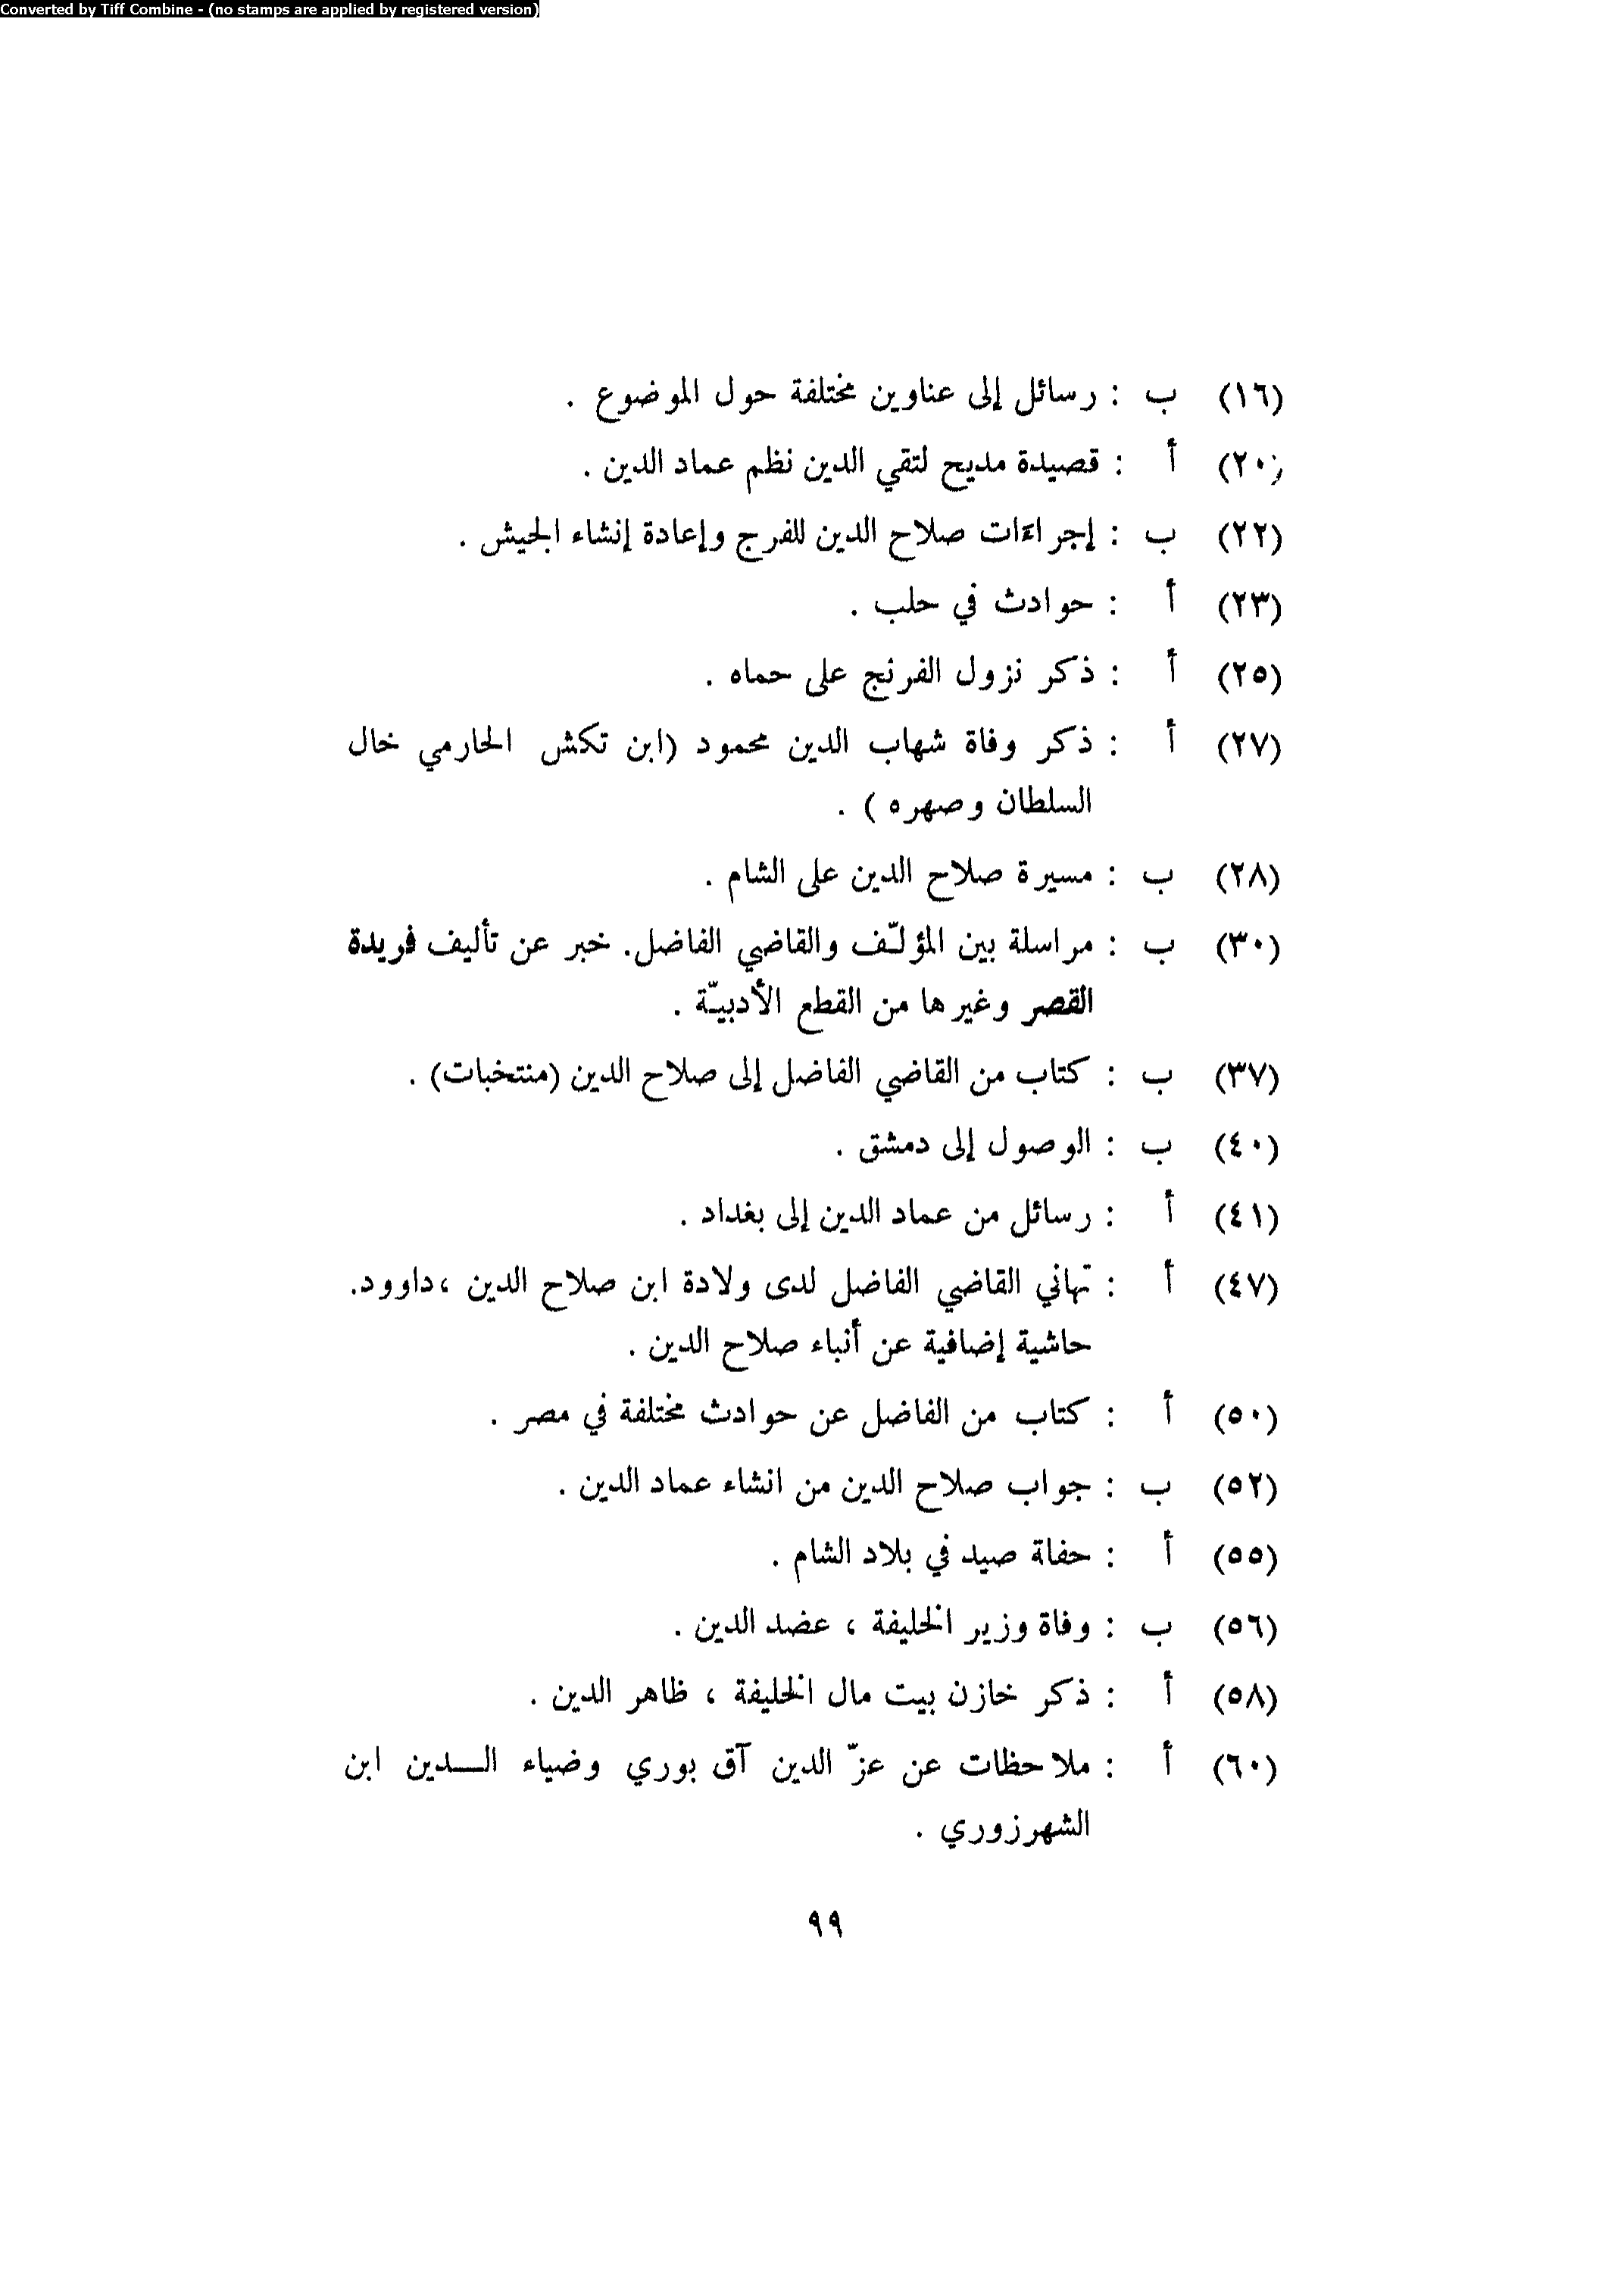 Converted by Tiff Combine - (no stamps are applied by registered version)
(١٦) ب : رسائل إلى عناوين مختلفة حول الموضوع .
(٢٠) أ : قصيدة مديح لتقي الدين نظم عماد الدين .
(٢٢) ب : إجراءات صلاح الدين للفرج وإعادة إنشاء الجيش .
(٢٣) أ : حوادث في حلب .
(٢٥) أ : ذكر نزول الفرنج على حماه .
(٢٧) أ : ذكر وفاة شهاب الدين محمود (ابن تكش الحارمي خال
السلطان وصهره ) .
(٢٨) ب : مسيرة صلاح الدين على الشام .
(٣٠) ب : مراسلة بين المؤلّف والقاضي الفاضل. خبر عن تأليف فريدة
القصر وغيرها من القطع الأدبيّة .
(٣٧) ب : كتاب من القاضي الفاضل إلى صلاح الدين (منتخبات) .
(٤٠) ب : الوصول إلى دمشق .
(٤١) أ : رسائل من عماد الدين إلى بغداد .
(٤٧) أ : تهاني القاضي الفاضل لدى ولادة ابن صلاح الدين ،داوود.
حاشية إضافية عن أنباء صلاح الدين .
(٥٠) أ : كتاب من الفاضل عن حوادث مختلفة في مصر .
(٥٢) ب : جواب صلاح الدين من انشاء عماد الدين .
(٥٥) أ : حفاة صيد في بلاد الشام .
(٥٦) ب : وفاة وزير الخليفة ، عضد الدين .
(٥٨) أ : ذكر خازن بيت مال الخليفة ، ظاهر الدين .
(٦٠) أ : ملاحظات عن عزّ الدين آق بوري وضياء الـــدين ابن
الشهرزوري .
٩٩